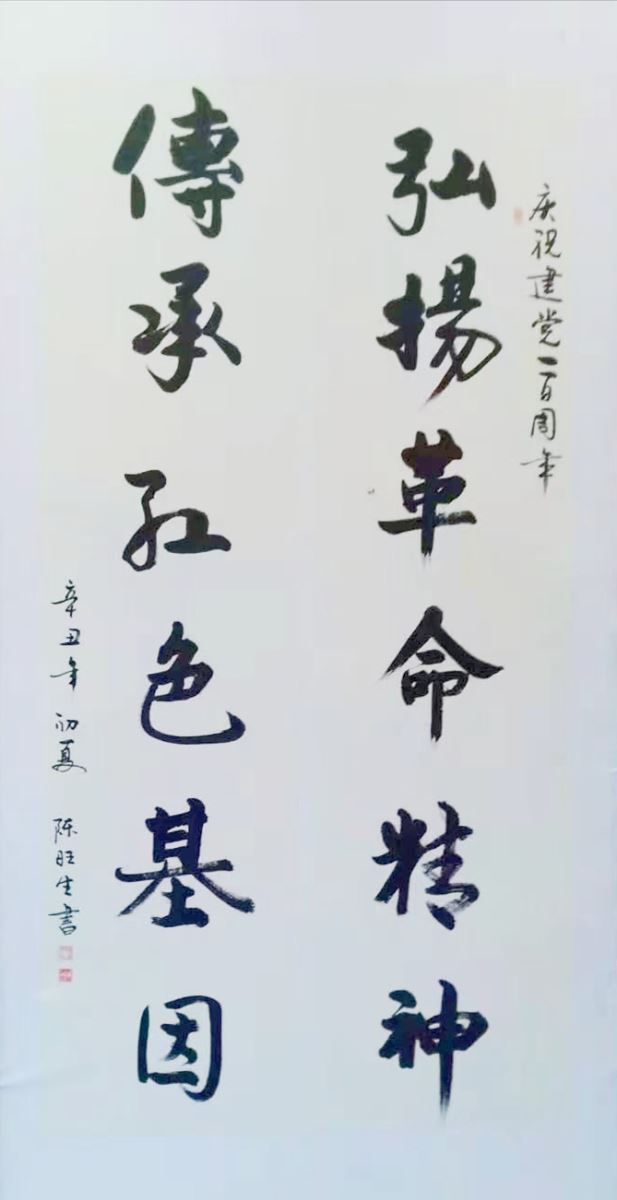 庆祝建党一百周年
弘揚革命精神
傳承红色基因
辛丑年初夏 陈旺生書